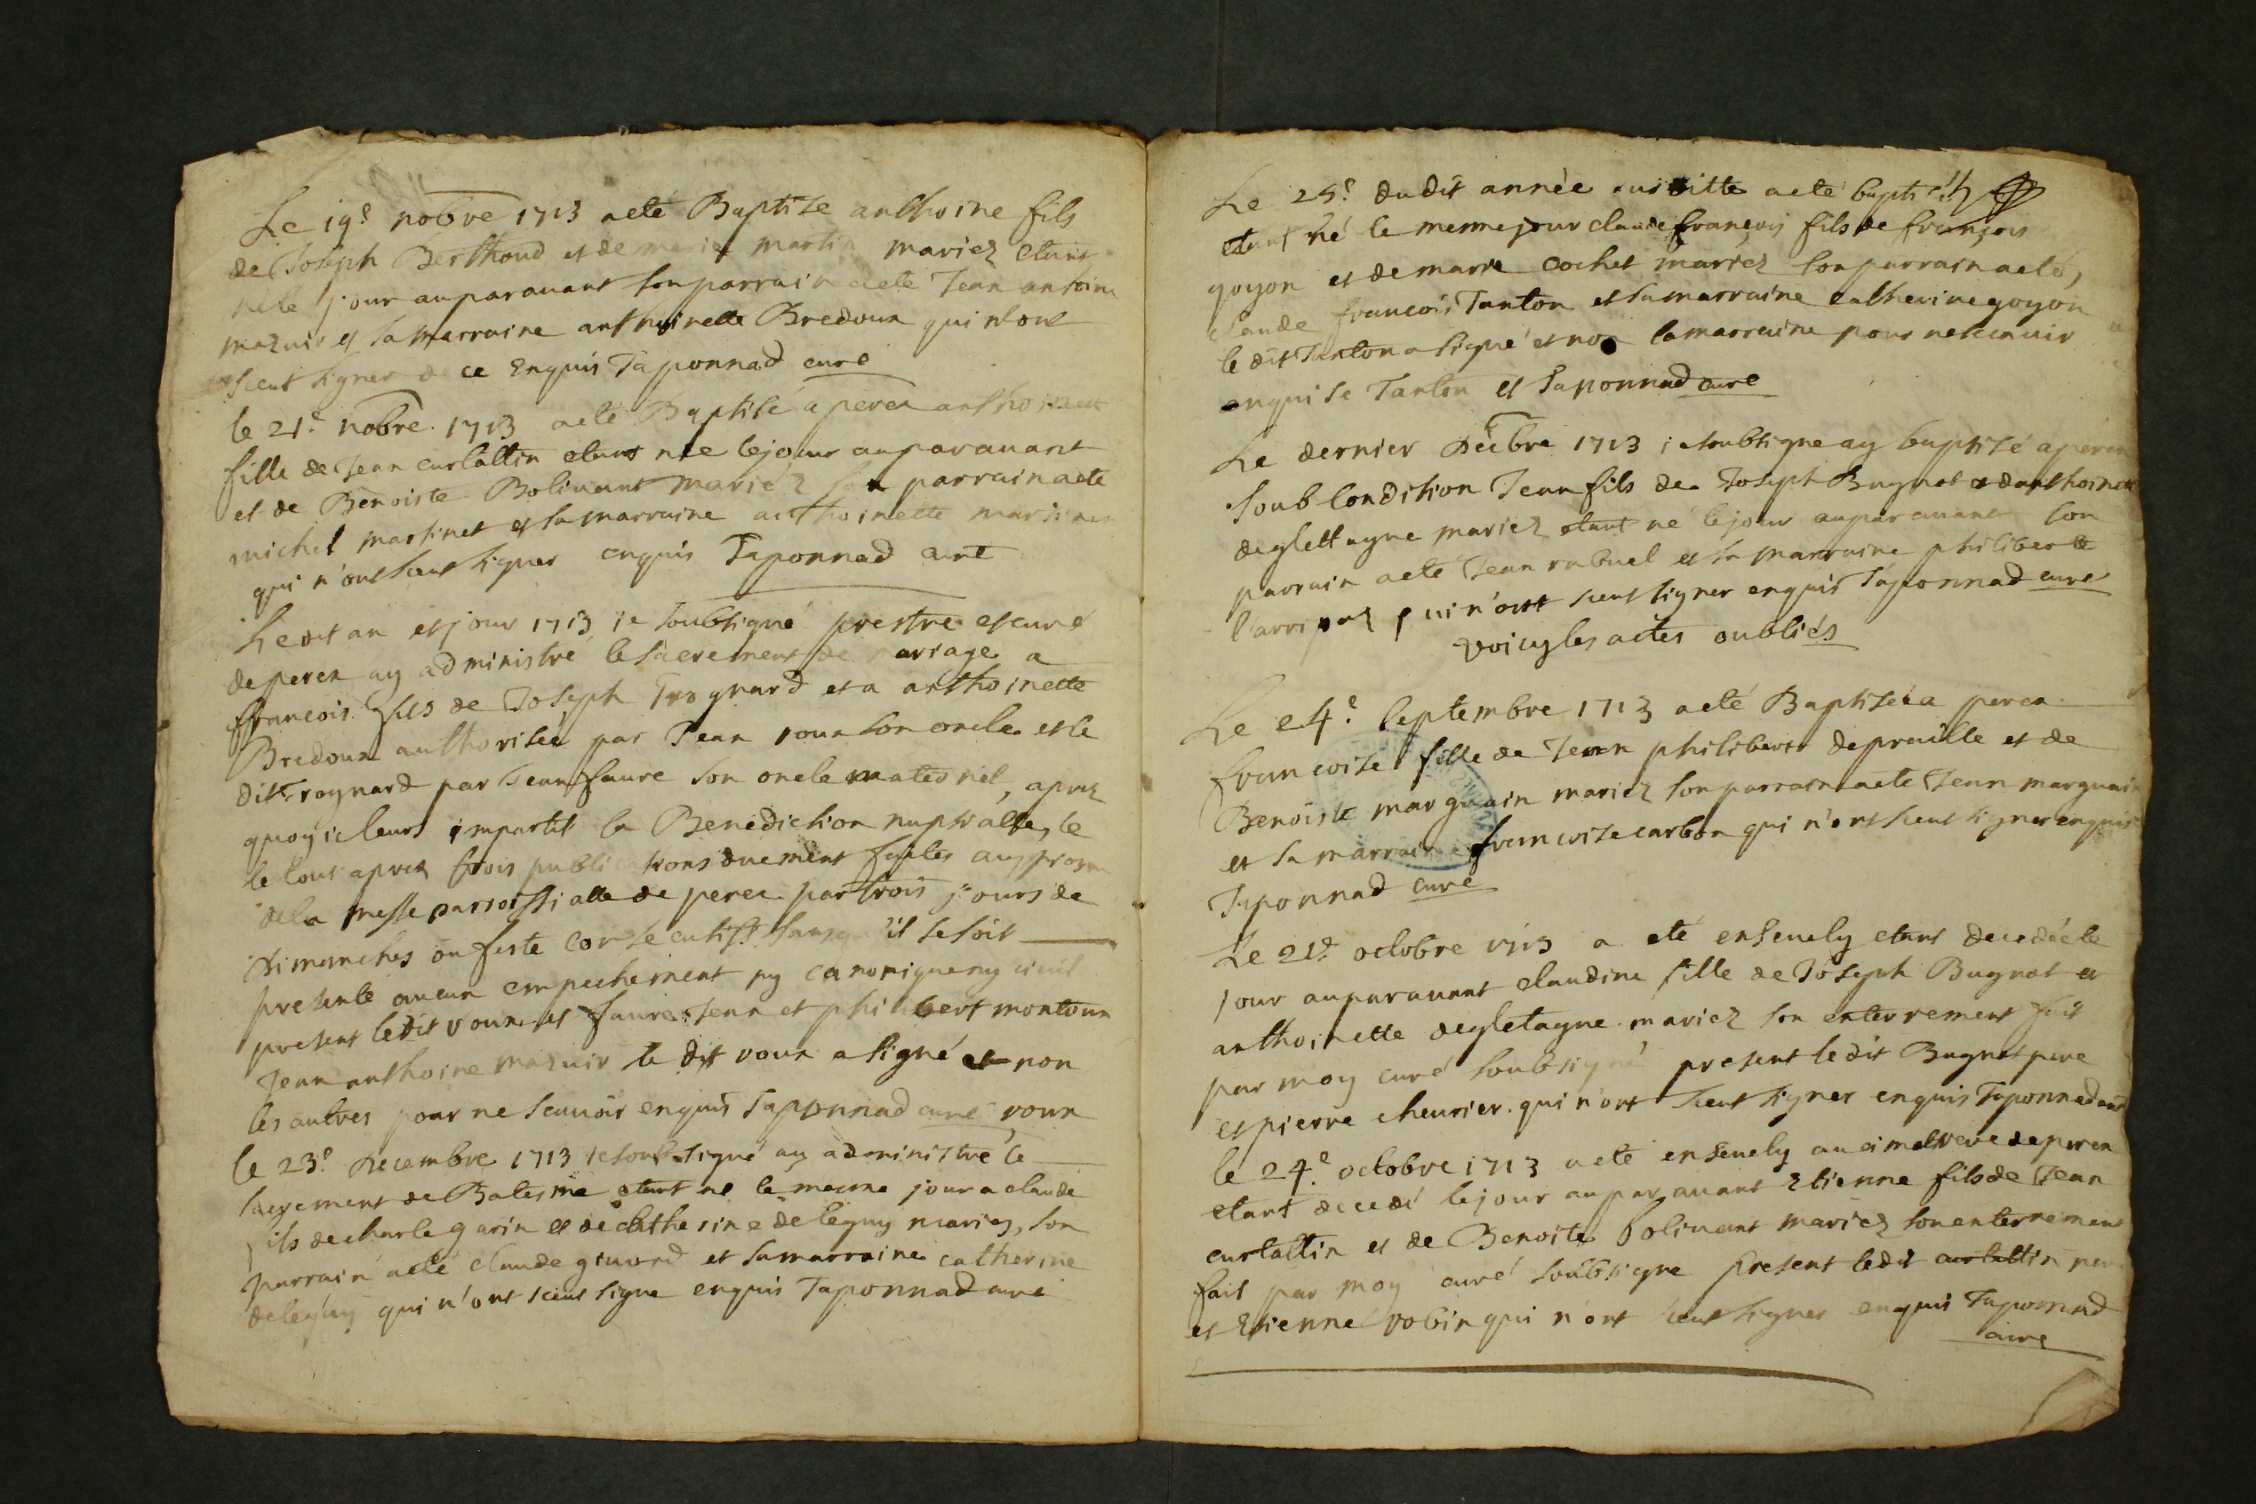 Le 19e nobre 1713 acté Baptize anthoine fils
de Joseph Berthoud et de marie martin mariez etant
né le jour auparavant son parrain acté Jean antoine
mazuir et sa marraine anthoinette Bredoux qui n'ont
sceut signer de ce enquis Taponnad curé
le 21e nobre 1713 acté Baptisé a perex anthoinette
fille de Jean curtattin etant née le jour auparavant
et de Benoiste Bolivant mariez son parrain acté
michel martinet et sa marraine anthoinette martinet
qui n'ont sceut signer enquis Taponnad curé
Le dit an et jour 1713 je soubsigné prestre et curé
de perex ay administré le sacrement de mariage a
francois fils de Joseph Trognard et a anthoinette
Bredoux authorisée par Jean roux son oncle et le
dit Trognard par Jean faure son oncle maternel, aprez
quoy ie leurs impartit la Benediction nuptialle, le
le tout aprez trois publications duement faites aux prosne
de la messe parroissialle de perex par trois jours de
dimanches ou feste consecutiff sans qu'il se soit
presenté aucun empechement ny canonique ny civil
present le dit voux et faure Jean et philibert montoux
Jean anthoine mazuir le dit voux a signé et non
les autres pour ne scavoir enquis Taponnad curé, voux
le 23e decembre 1713 je soubsigné ay administré le
sacrement de Batesme etant né le mesme jour a claude
fils de charle garin et de catherine deleguy mariez, son
parrain acté claude givord et sa marraine catherine
deleguy qui n'ont sceut signe enquis Taponnad curé
Le 25e dudit année susditte acté baptisé
etant né le mesme jour claude francois fils de francois
goyon et de marie cochet mariez son parrain acté,
claude francois Tanton et sa marraine catherine goyon
le dit Tanton a signé et non la marraine pour ne scavoir
enquise Tanton et Taponnad curé
Le dernier Decbre 1713 je soubsigne ay baptizé a perex
soub condition Jean fils de Joseph Bugnot et d'anthoinette
deglettagne mariez etant né le jour auparavant son
parrain acté Jean rabuel et sa marraine philiberte
l'arripaz qui n'ont sceut signer enquis Taponnad curé
voicy les actes oubliés
Le 24e septembre 1713 acté Baptisée a perex
francoise fille de Jean philibert depraille et de
Benoiste marguain mariez son parrain acté Jean marguain
et sa marraine francoise carbon qui n'ont sceut signer enquis
Taponnad curé
Le 21e octobre 1713 a eté ensevely etant decedée le
jour auparavant claudine fille de Joseph Bugnot et
anthoinette degletagne mariez son enterrement fait
par moy curé soubsigné present le dit Bugnot pere
et pierre cheurier qui n'ont sceut signer enquis Taponnad curé
le 24e octobre 1713 acté ensevely au cimetiere de perex
etant decedé le jour auparavant Etienne fils de Jean
curtattin et de Benoite Bolivant mariez son enterrement
fait par moy curé soubsigne present le dit curtattin pere
et Etienne vobin qui n'ont sceut signer enquis Taponnad
curé